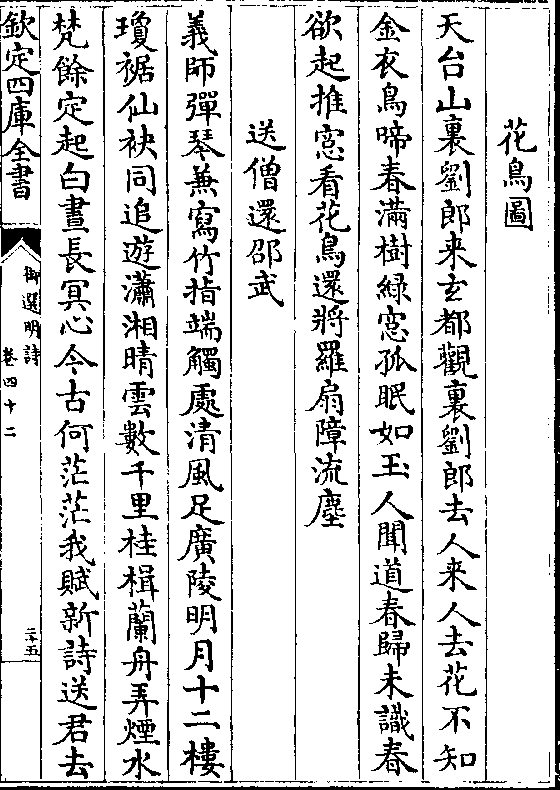 花鳥圖
天台山裏劉郎来玄都觀裏劉郎去人来人去花不知
金衣鳥啼春滿樹綠窓孤眠如玉人聞道春歸未識春
欲起推窓看花鳥還將羅扇障流塵
送僧還邵武
義師彈琴兼寫竹指端觸處清風足廣陵明月十二樓
瓊裾仙袂同追遊瀟湘晴雲數千里桂楫蘭舟弄煙水
梵餘定起白晝長冥心今古何茫茫我賦新詩送君去
欽定四庫全書
御選明詩
卷四十二
三十五